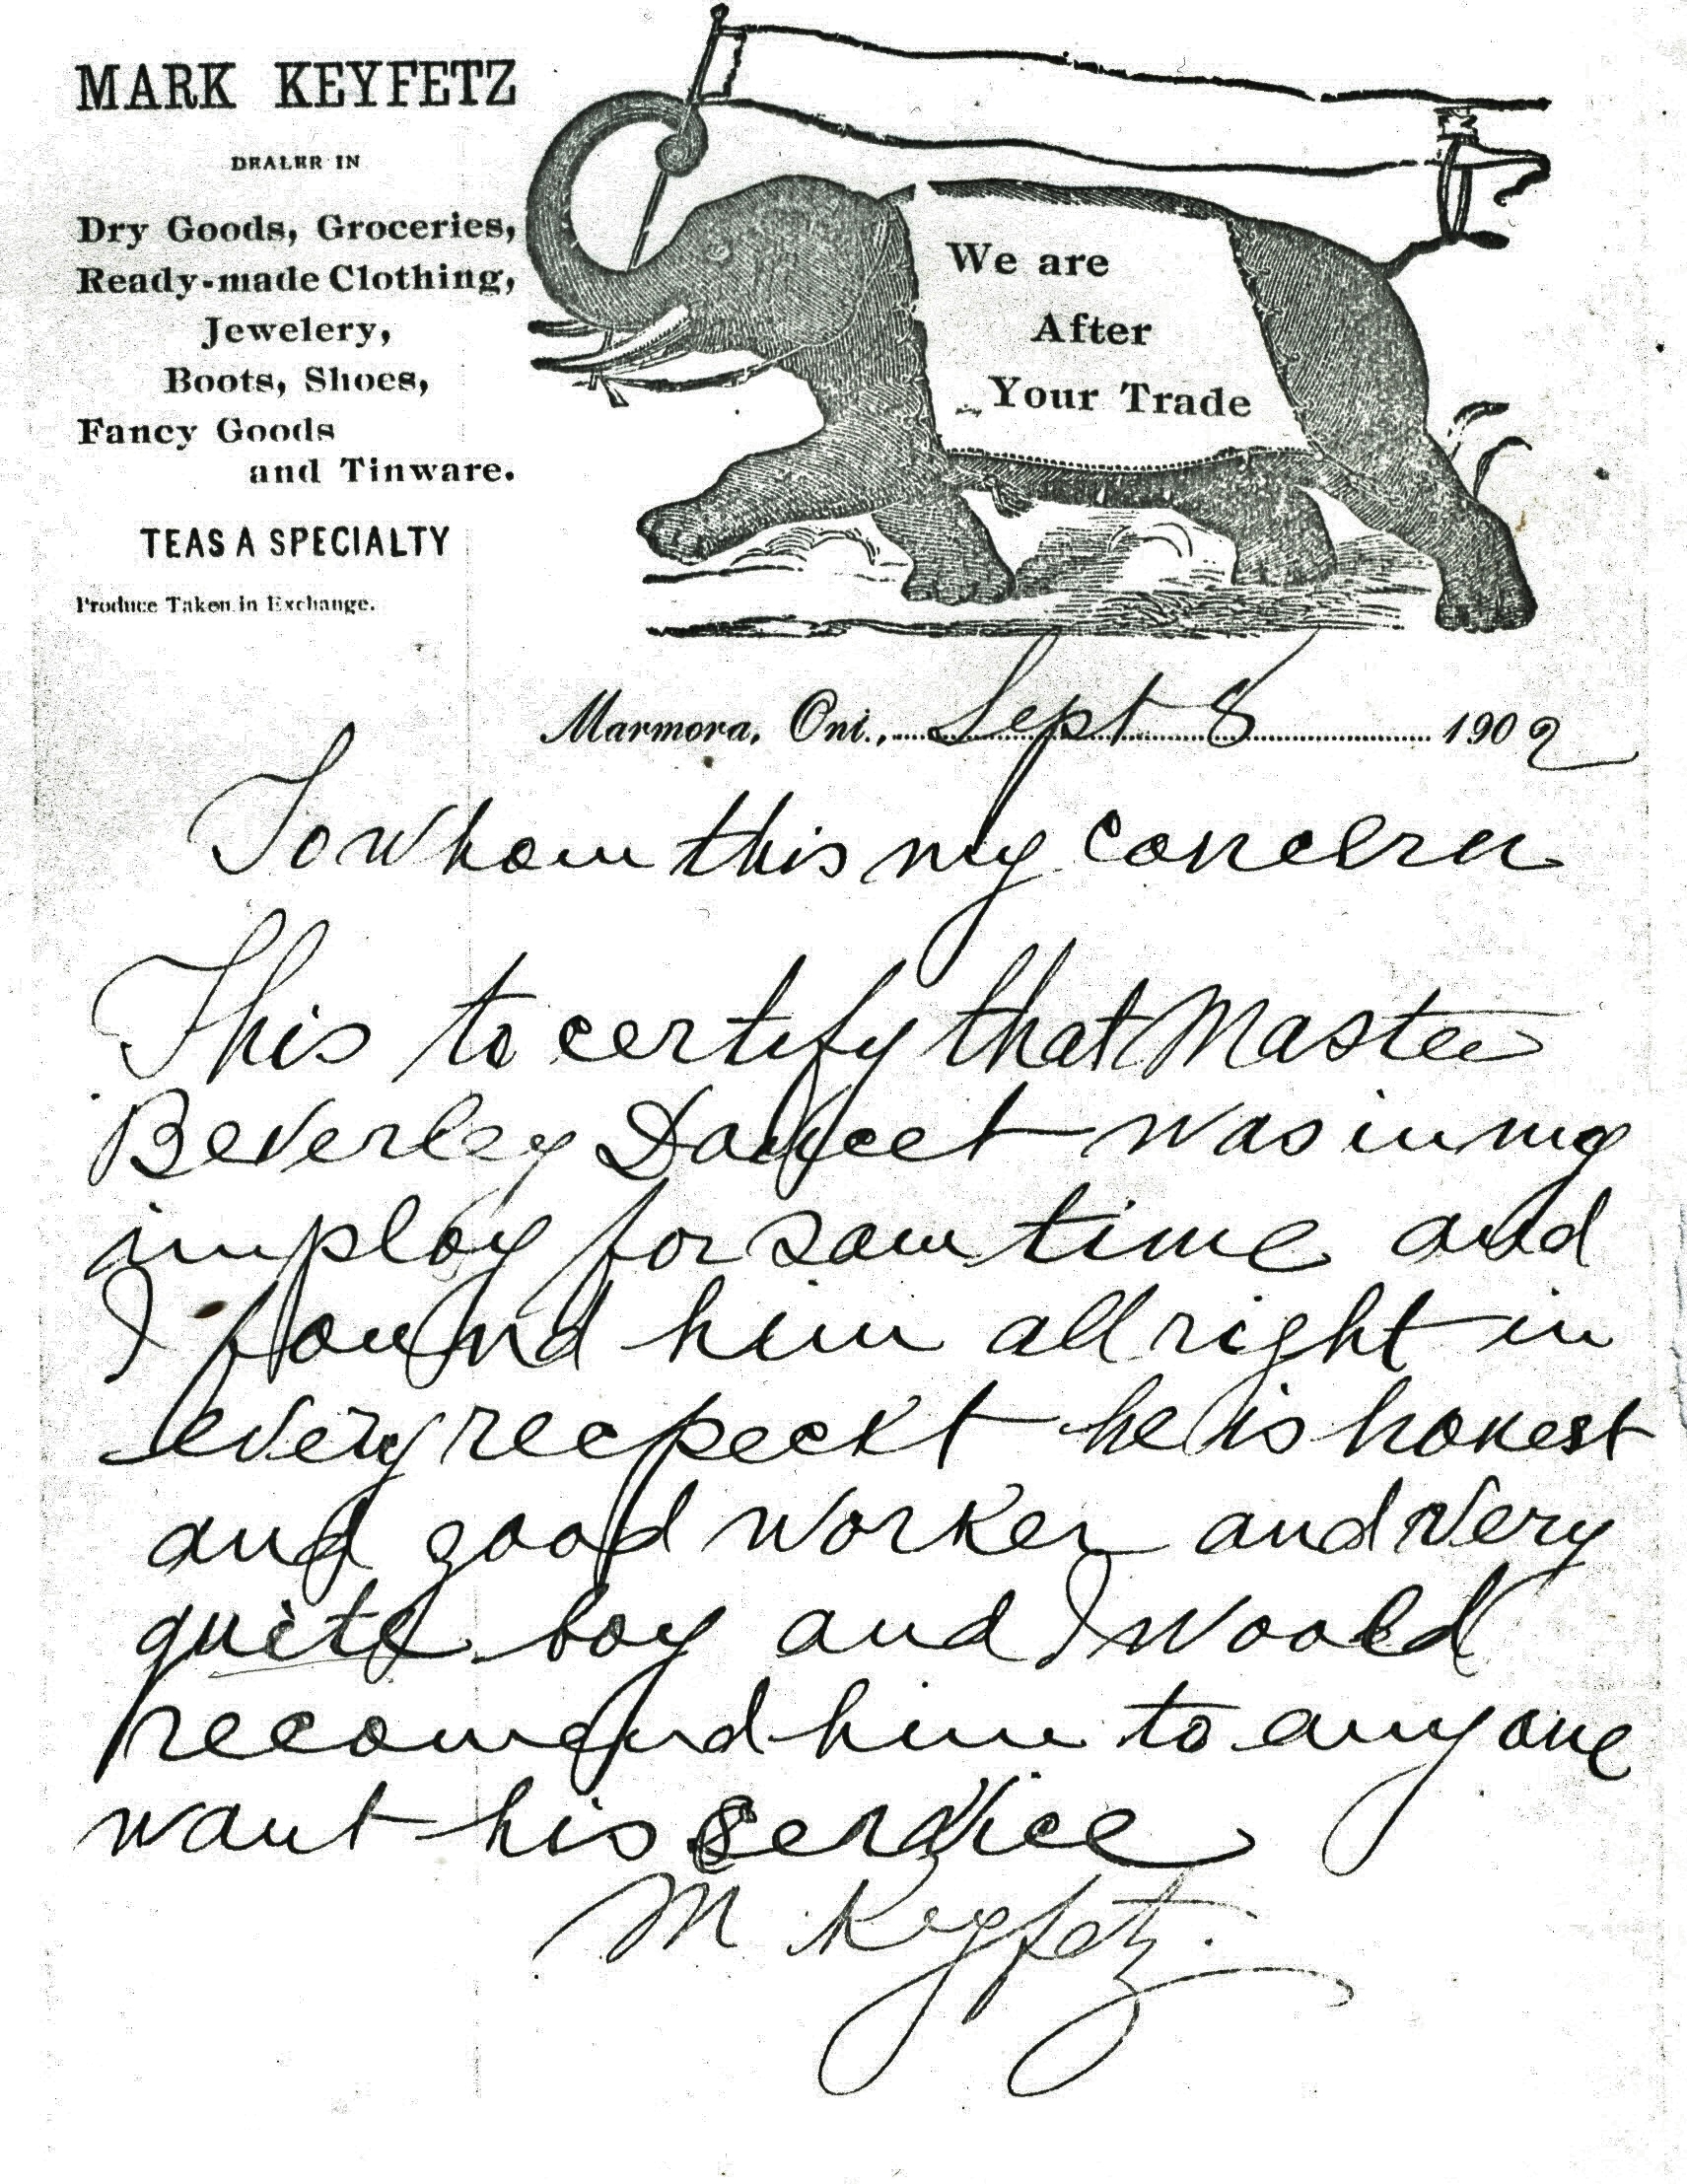 MARK KEYFETZ
DEALER IN
Dry Goods, Groceries,
Ready-made Clothing,
Jewelery,
Boots, Shoes,
Fancy Goods
and Tinware.
TEAS A SPECIALTY
Produce Taken in Exchange.
We are
After
Your Trade
Marmora, Ont., Sept 8 1902
To whom this my concern
This to certify that Master
Beverley was in my
imploy for som time and
I found him all right in
every recpeckt he is honest
and good worker and very
quite boy and I woold
recomend him to any one
want his service
M Keyfetz.